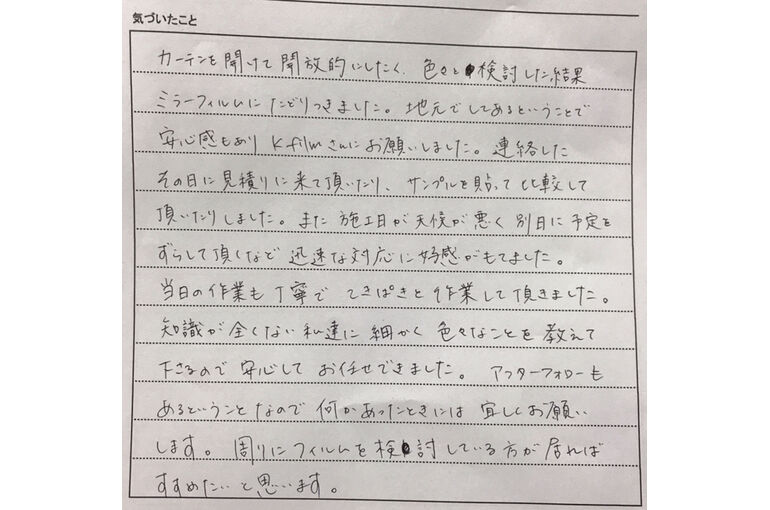 気づいたこと
カーテンを開けて開放的にしたく、色々と検討した結果
ミラーフィルムにたどりつきました。地元でしてあるということで
安心感もあり K-filmさんにお願いしました。連絡した
その日に見積りに来て頂いたり、サンプルを貼って比較して
頂いたりしました。また施工日が天候が悪く別日に予定を
ずらして頂くなど迅速な対応に好感がもてました。
当日の作業も丁寧でてきぱきと作業して頂きました。
知識が全くない私達に細かく色々なことを教えて
下さるので安心してお任せできました。アフターフォローも
あるということなので何かあったときには宜しくお願い
します。周りにフィルムを検討している方が居れば
すすめたいと思います。